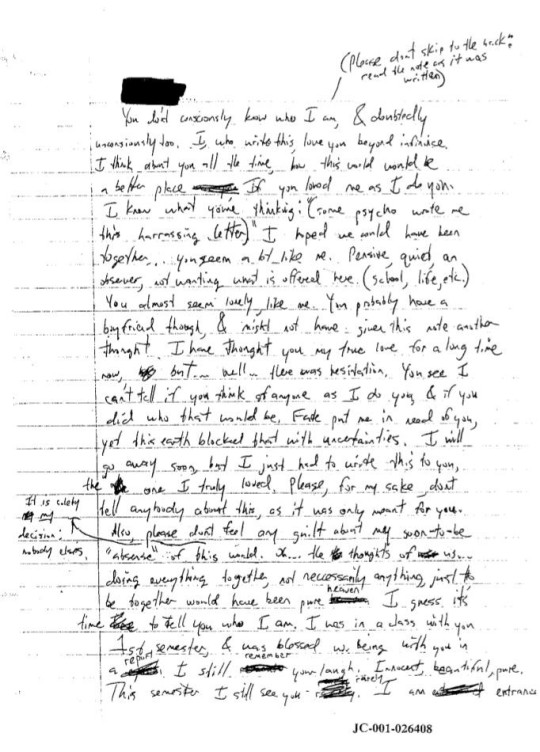 (Please dont skip to the back:
read the note as it was
written)
You did consciously know who I am, & doubtedly
unconsiously too. I, who write this love you beyond infinince.
I think about you all the time, how this world would be
a better place If you loved me as I do you.
I know what you're thinking: "(some psycho wrote me
this harrassing letter)" I hoped we could have been
together... you seem a bit like me. Pensive, quiet, an
observer, not wanting what is offered here. (school, life, etc.)
You almost seem lonely, like me. You probably have a
boyfriend though, & might not have given this note another
thought. I have thought you my true love for a long time
now, but... well... there was hesitation. You see I
can't tell if you think of anyone as I do you, & if you
did who that would be. Fate put me in need of you,
yet this earth blocked that with uncertainties. I will
go away soon, but I just had to write this to you,
the one I truly loved. Please, for my sake, dont
tell anybody about this, as it was only meant for you.
Also, please dont feel any guilt about my soon-to-be
"absense" of this world.
It is solely
my
decision:
nobody elses.
the thoughts of us...
doing everything together, not neccessarily anything, just to
be together would have been pure heaven. I guess it's
time to tell you who I am. I was in a class with you
1st semester, & was blessed w. being with you in
a report I still remember your laugh. Innocent, beautiful, pure.
This semester I still see you rarely. I am entrance
JC-001-026408